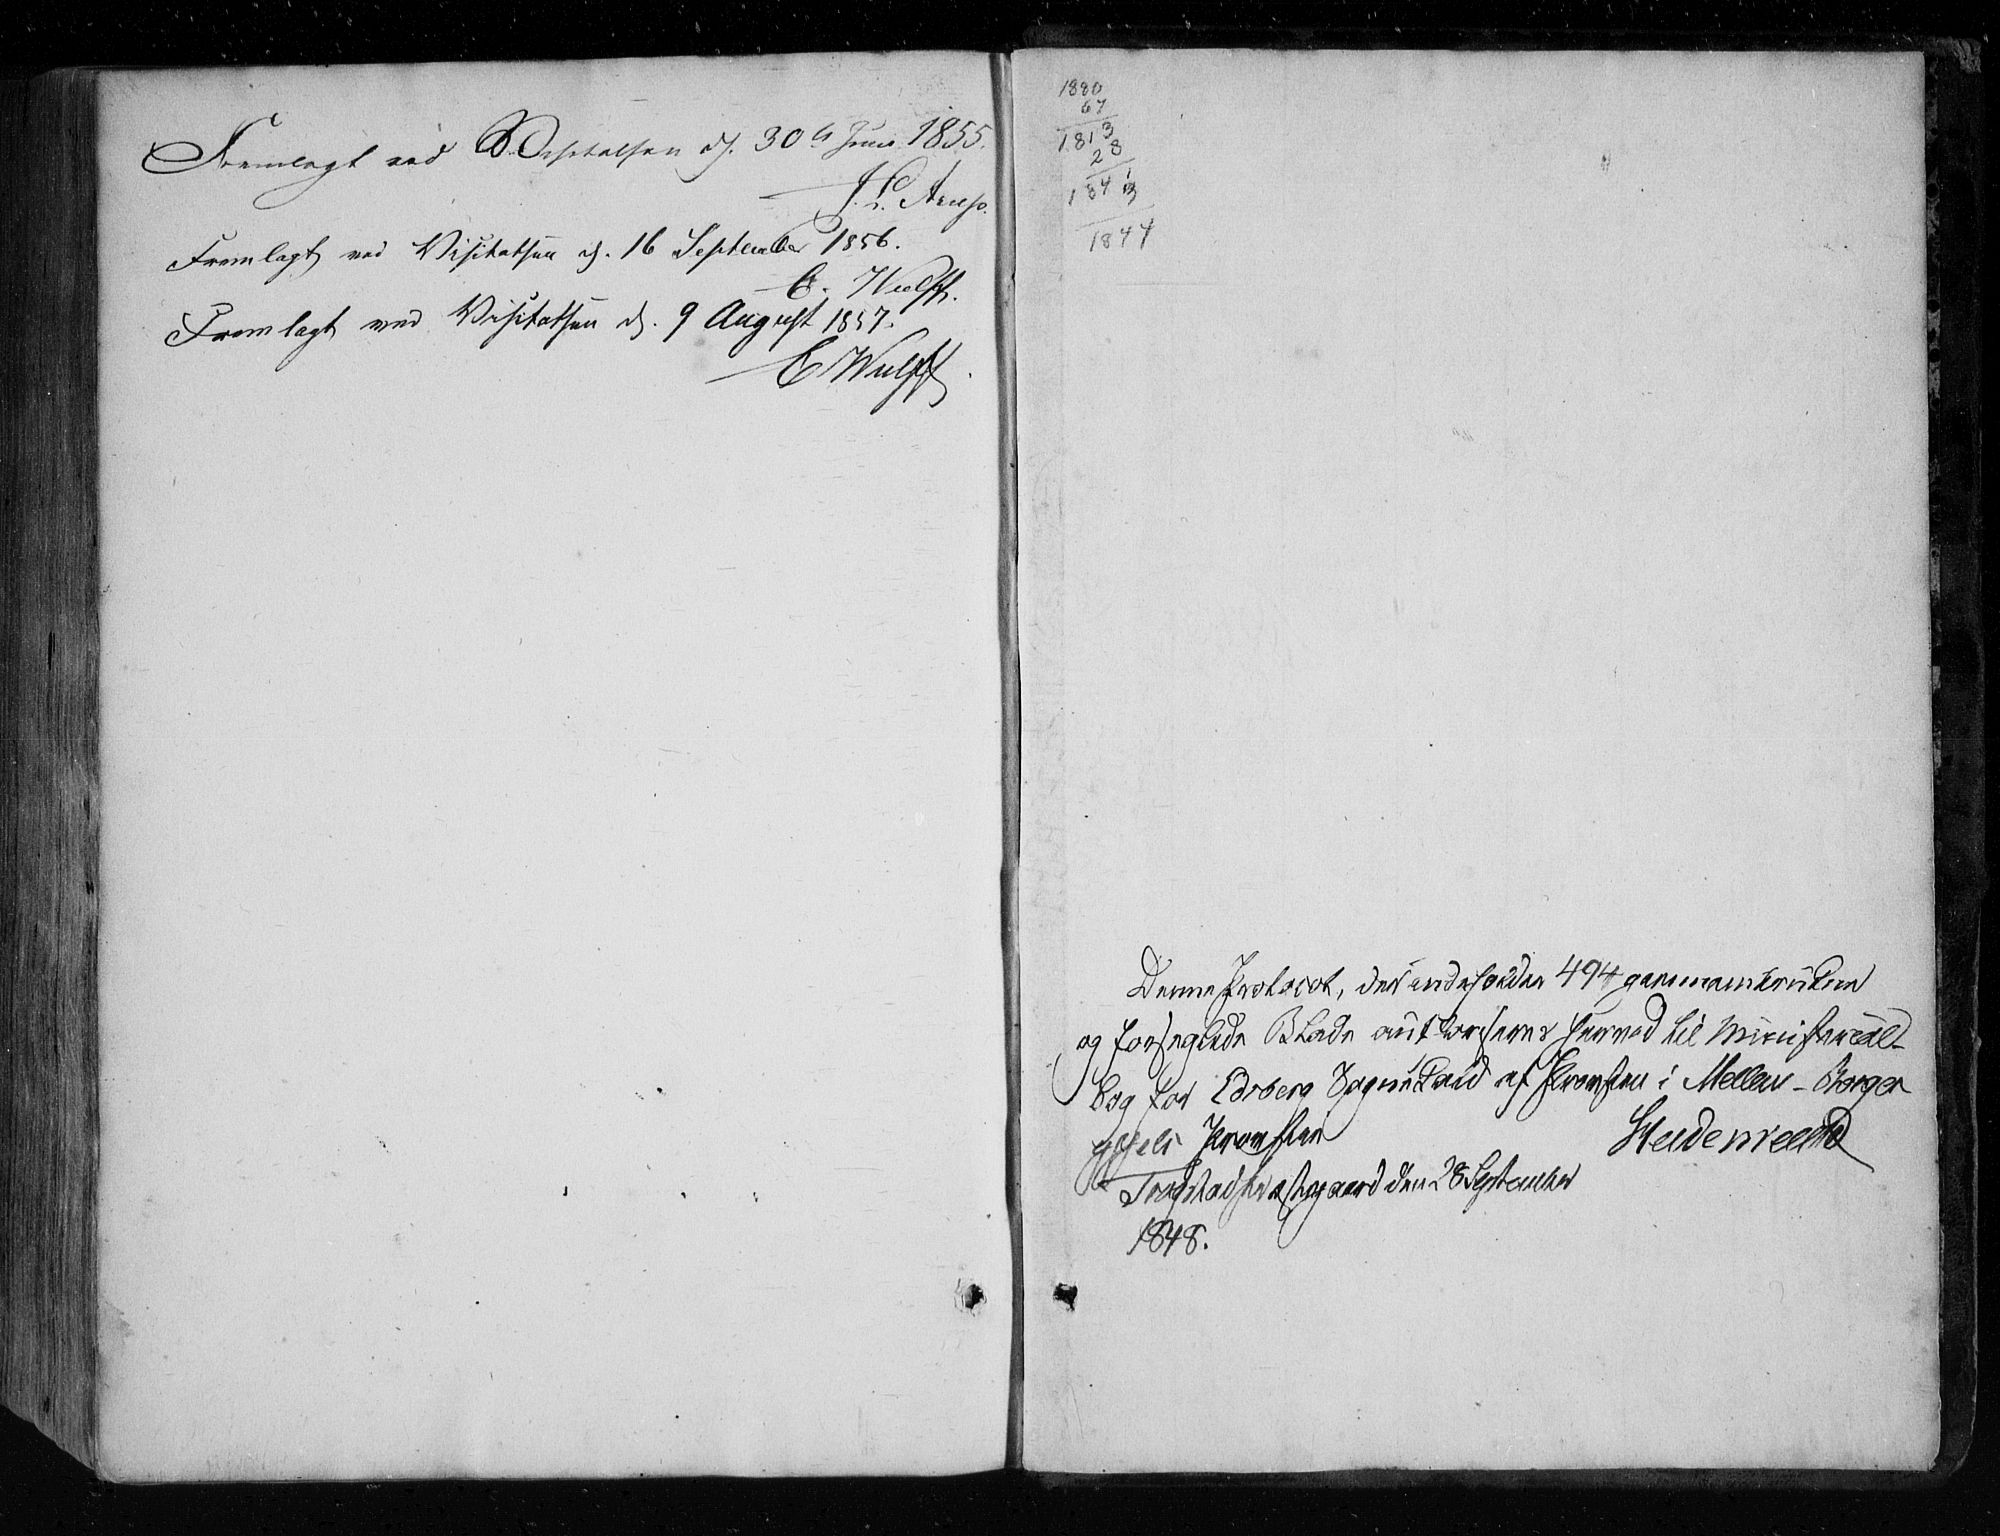 Fremlagt ved Visitatsen d. 30te Juni 1855.
J. L. Arup.
Fremlagt ved Visitatsen d. 16 September 1856.
C. Wulff.
Fremlagt ved Visitatsen d. 9 August 1857.
C Wulff
1880
67
1813
28
1844
Denne Protocol, der indeholder 494 gjennemtrukne
og forseglede Blade authoriseres herved til Ministerial-
bog for Edsberg Sognekald af Provsten i Mellem-Borge-
syssels Provsti
Heidenreich
Trøgstad Præstegaard den 28 September
1848.